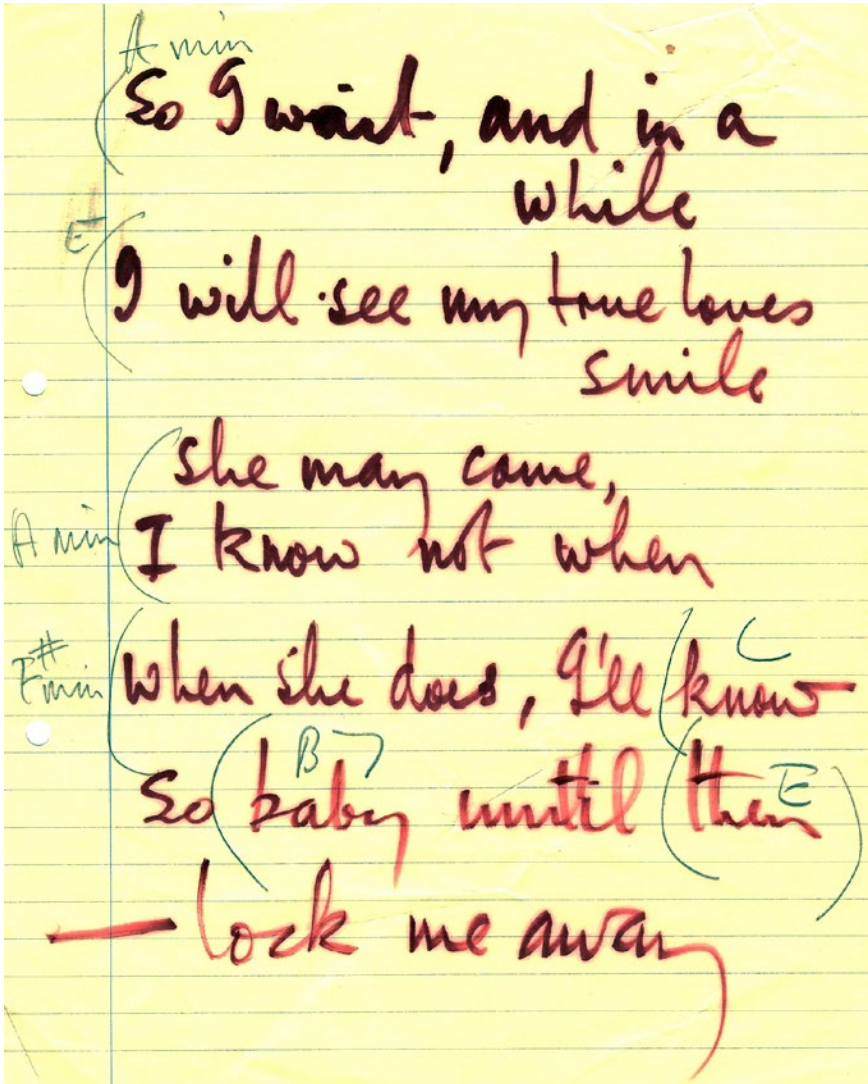 A min
So I wait, and in a
while
E
I will see my true loves
smile
she may come,
A min
I know not when
F#min
When she does, I'll know
C
B7
So baby until then
E
— lock me away